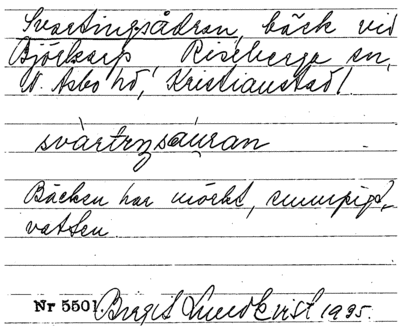 Svartingsådran, bäck vid
Björkarp, Riseberga sn,
N. Åsbo hd, Kristianstad l.
svàrtıŋsáuran
Bäcken har mörkt, sumpigt
vatten.
Nr 5501 Birgit Lundkvist 1935.